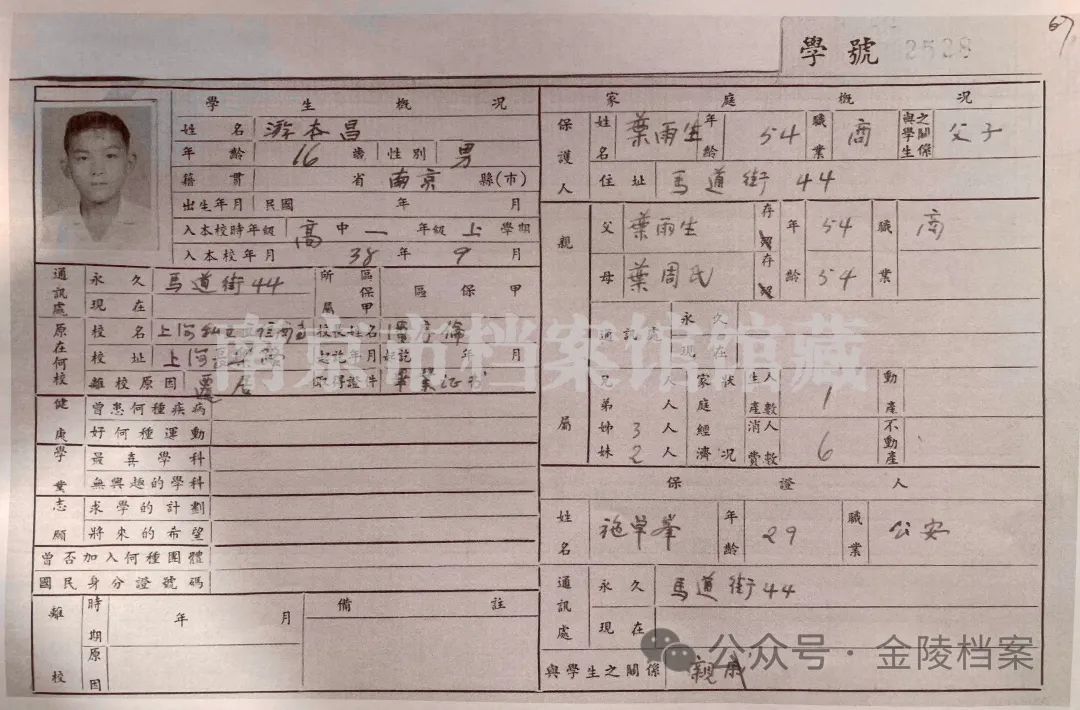 67
學號 2528
學生概況
姓名 游本昌
年齡 16 歲 性別 男
籍貫 省 南京 縣(市)
出生年月 民國 年 月
入本校時年級 高中一年級上學期
入本校年月 38年9月
通訊處 永久 馬道街44 所屬區保甲 區保甲
現在
原在何校 校名 上海 校長姓名
校址 上海 起訖年月 起訖 年 月
離校原因 遷居 取得證件 畢業证书
健康 曾患何種疾病
好何種運動
學業 最喜學科
無興趣的學科
志願 求學的計劃
將來的希望
曾否加入何種團體
國民身分證號碼
離校 時期 年 月 備註
原因
家庭概況
保護人 姓名 葉雨生 年齡 54 職業 商 與學生之關係 父子
住址 馬道街 44
親屬 父 葉雨生 存 年齡 54 職業 商
母 葉周氏 存 54
通訊處 永久
現在
兄 人 家庭經濟狀況 生產人數 1 動產
弟 人
姊 3 人 消費人數 6 不動產
妹 2 人
保證人
姓名 施 年齡 29 職業 公安
通訊處 永久 馬道街44
現在
與學生之關係 親戚
南京市档案馆馆藏
公众号·金陵档案